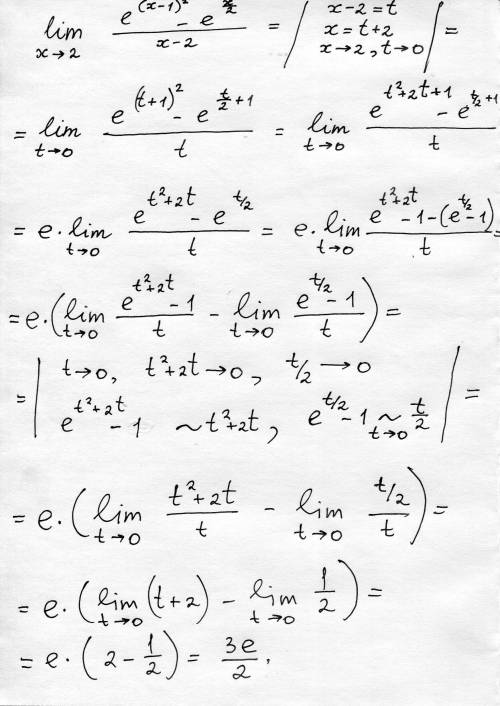 lim x→2 (e^((x-1)²) - e^(x/2)) / (x-2) = | x-2=t
x=t+2
x→2, t→0 | =
= lim t→0 (e^((t+1)²) - e^(t/2+1)) / t = lim t→0 (e^(t²+2t+1) - e^(t/2+1)) / t
= e· lim t→0 (e^(t²+2t) - e^(t/2)) / t = e· lim t→0 (e^(t²+2t) -1-(e^(t/2)-1)) / t =
= e·( lim t→0 (e^(t²+2t) -1) / t - lim t→0 (e^(t/2) -1) / t ) =
= | t→0, t²+2t→0, t/2→0
e^(t²+2t) -1 ~ t²+2t, e^(t/2) -1 ~ t→0 t/2 | =
= e·( lim t→0 (t²+2t) / t - lim t→0 (t/2) / t ) =
= e·( lim t→0 (t+2) - lim t→0 1/2 ) =
= e·( 2 - 1/2 ) = 3e/2.